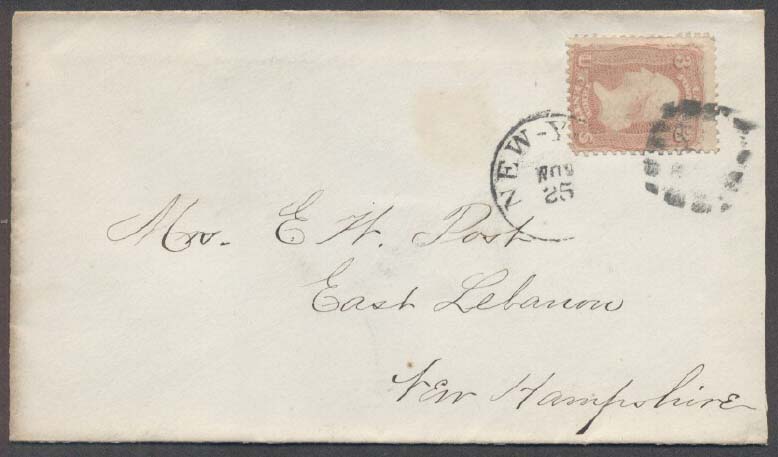 NEW-Y
NOV
25
Mrs. E. W. Post
East Lebanon
New Hampshire